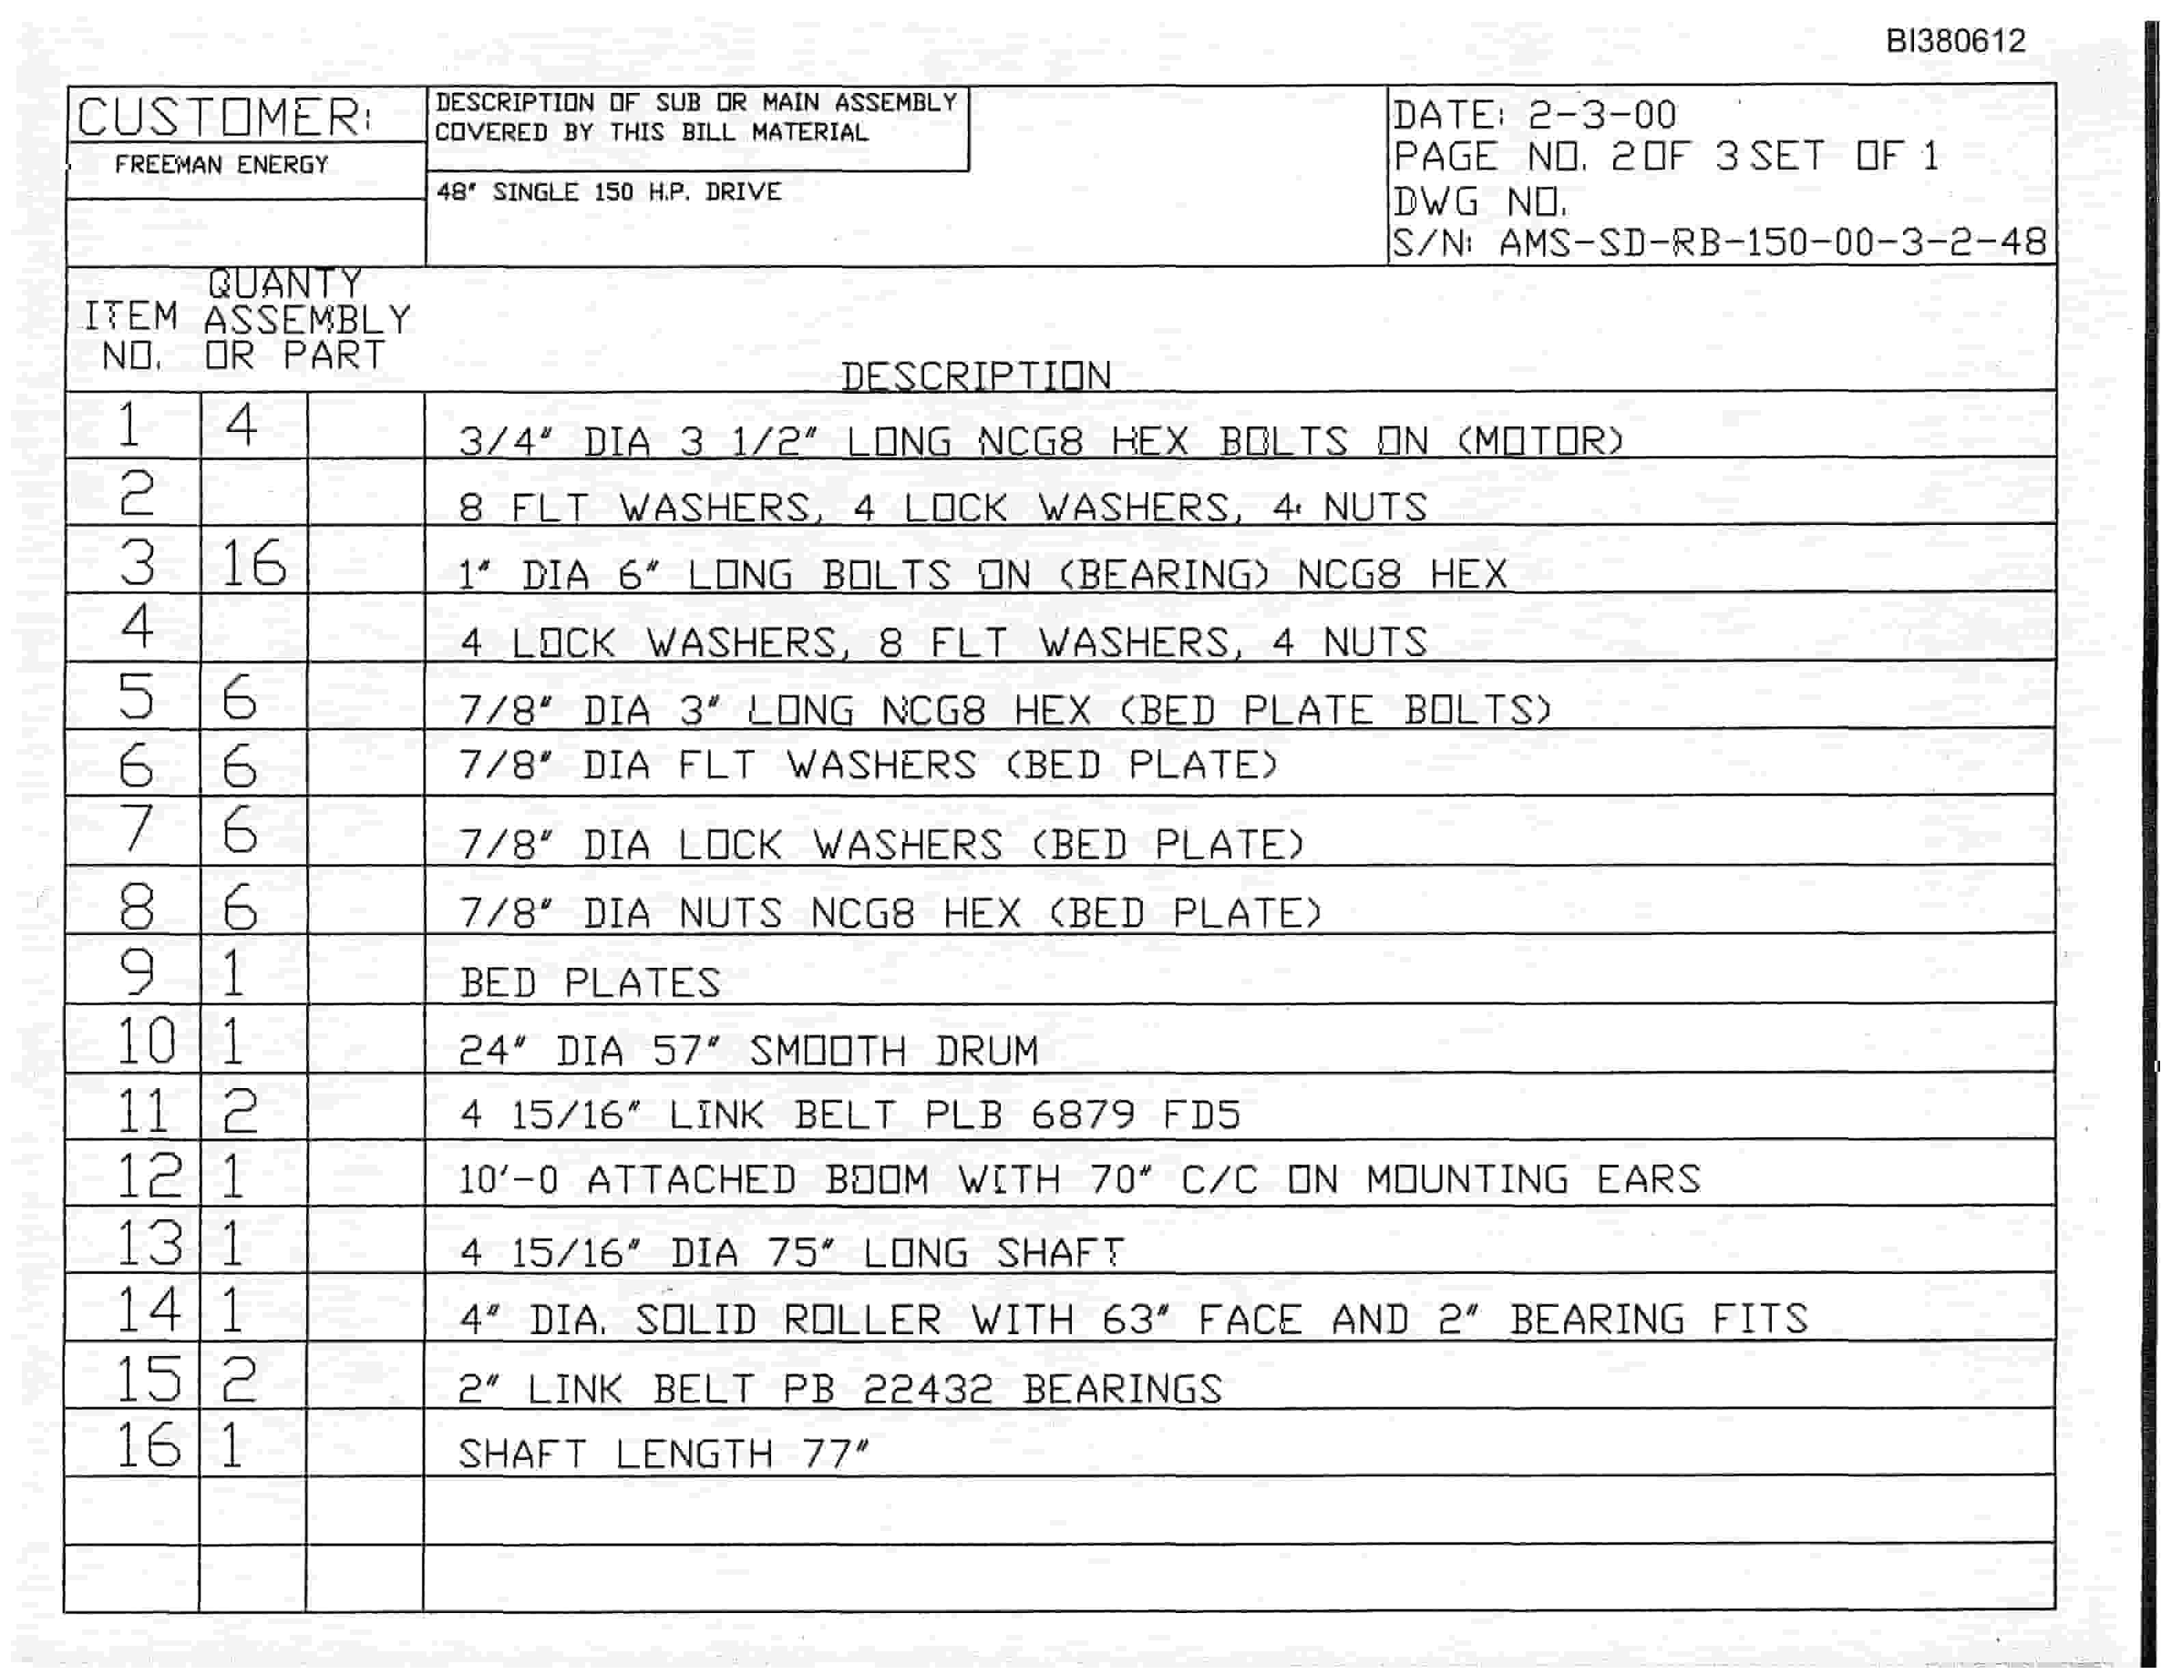 BI380612
CUSTOMER:
FREEMAN ENERGY
DESCRIPTION OF SUB OR MAIN ASSEMBLY
COVERED BY THIS BILL MATERIAL
48" SINGLE 150 H.P. DRIVE
DATE: 2-3-00
PAGE NO. 2 OF 3 SET OF 1
DWG NO.
S/N: AMS-SD-RB-150-00-3-2-48
QUANTY
ITEM ASSEMBLY
NO. OR PART
DESCRIPTION
1 4 3/4" DIA 3 1/2" LONG NCG8 HEX BOLTS ON (MOTOR)
2 8 FLT WASHERS, 4 LOCK WASHERS, 4 NUTS
3 16 1" DIA 6" LONG BOLTS ON (BEARING) NCG8 HEX
4 4 LOCK WASHERS, 8 FLT WASHERS, 4 NUTS
5 6 7/8" DIA 3" LONG NCG8 HEX (BED PLATE BOLTS)
6 6 7/8" DIA FLT WASHERS (BED PLATE)
7 6 7/8" DIA LOCK WASHERS (BED PLATE)
8 6 7/8" DIA NUTS NCG8 HEX (BED PLATE)
9 1 BED PLATES
10 1 24" DIA 57" SMOOTH DRUM
11 2 4 15/16" LINK BELT PLB 6879 FD5
12 1 10'-0 ATTACHED BOOM WITH 70" C/C ON MOUNTING EARS
13 1 4 15/16" DIA 75" LONG SHAFT
14 1 4" DIA. SOLID ROLLER WITH 63" FACE AND 2" BEARING FITS
15 2 2" LINK BELT PB 22432 BEARINGS
16 1 SHAFT LENGTH 77"